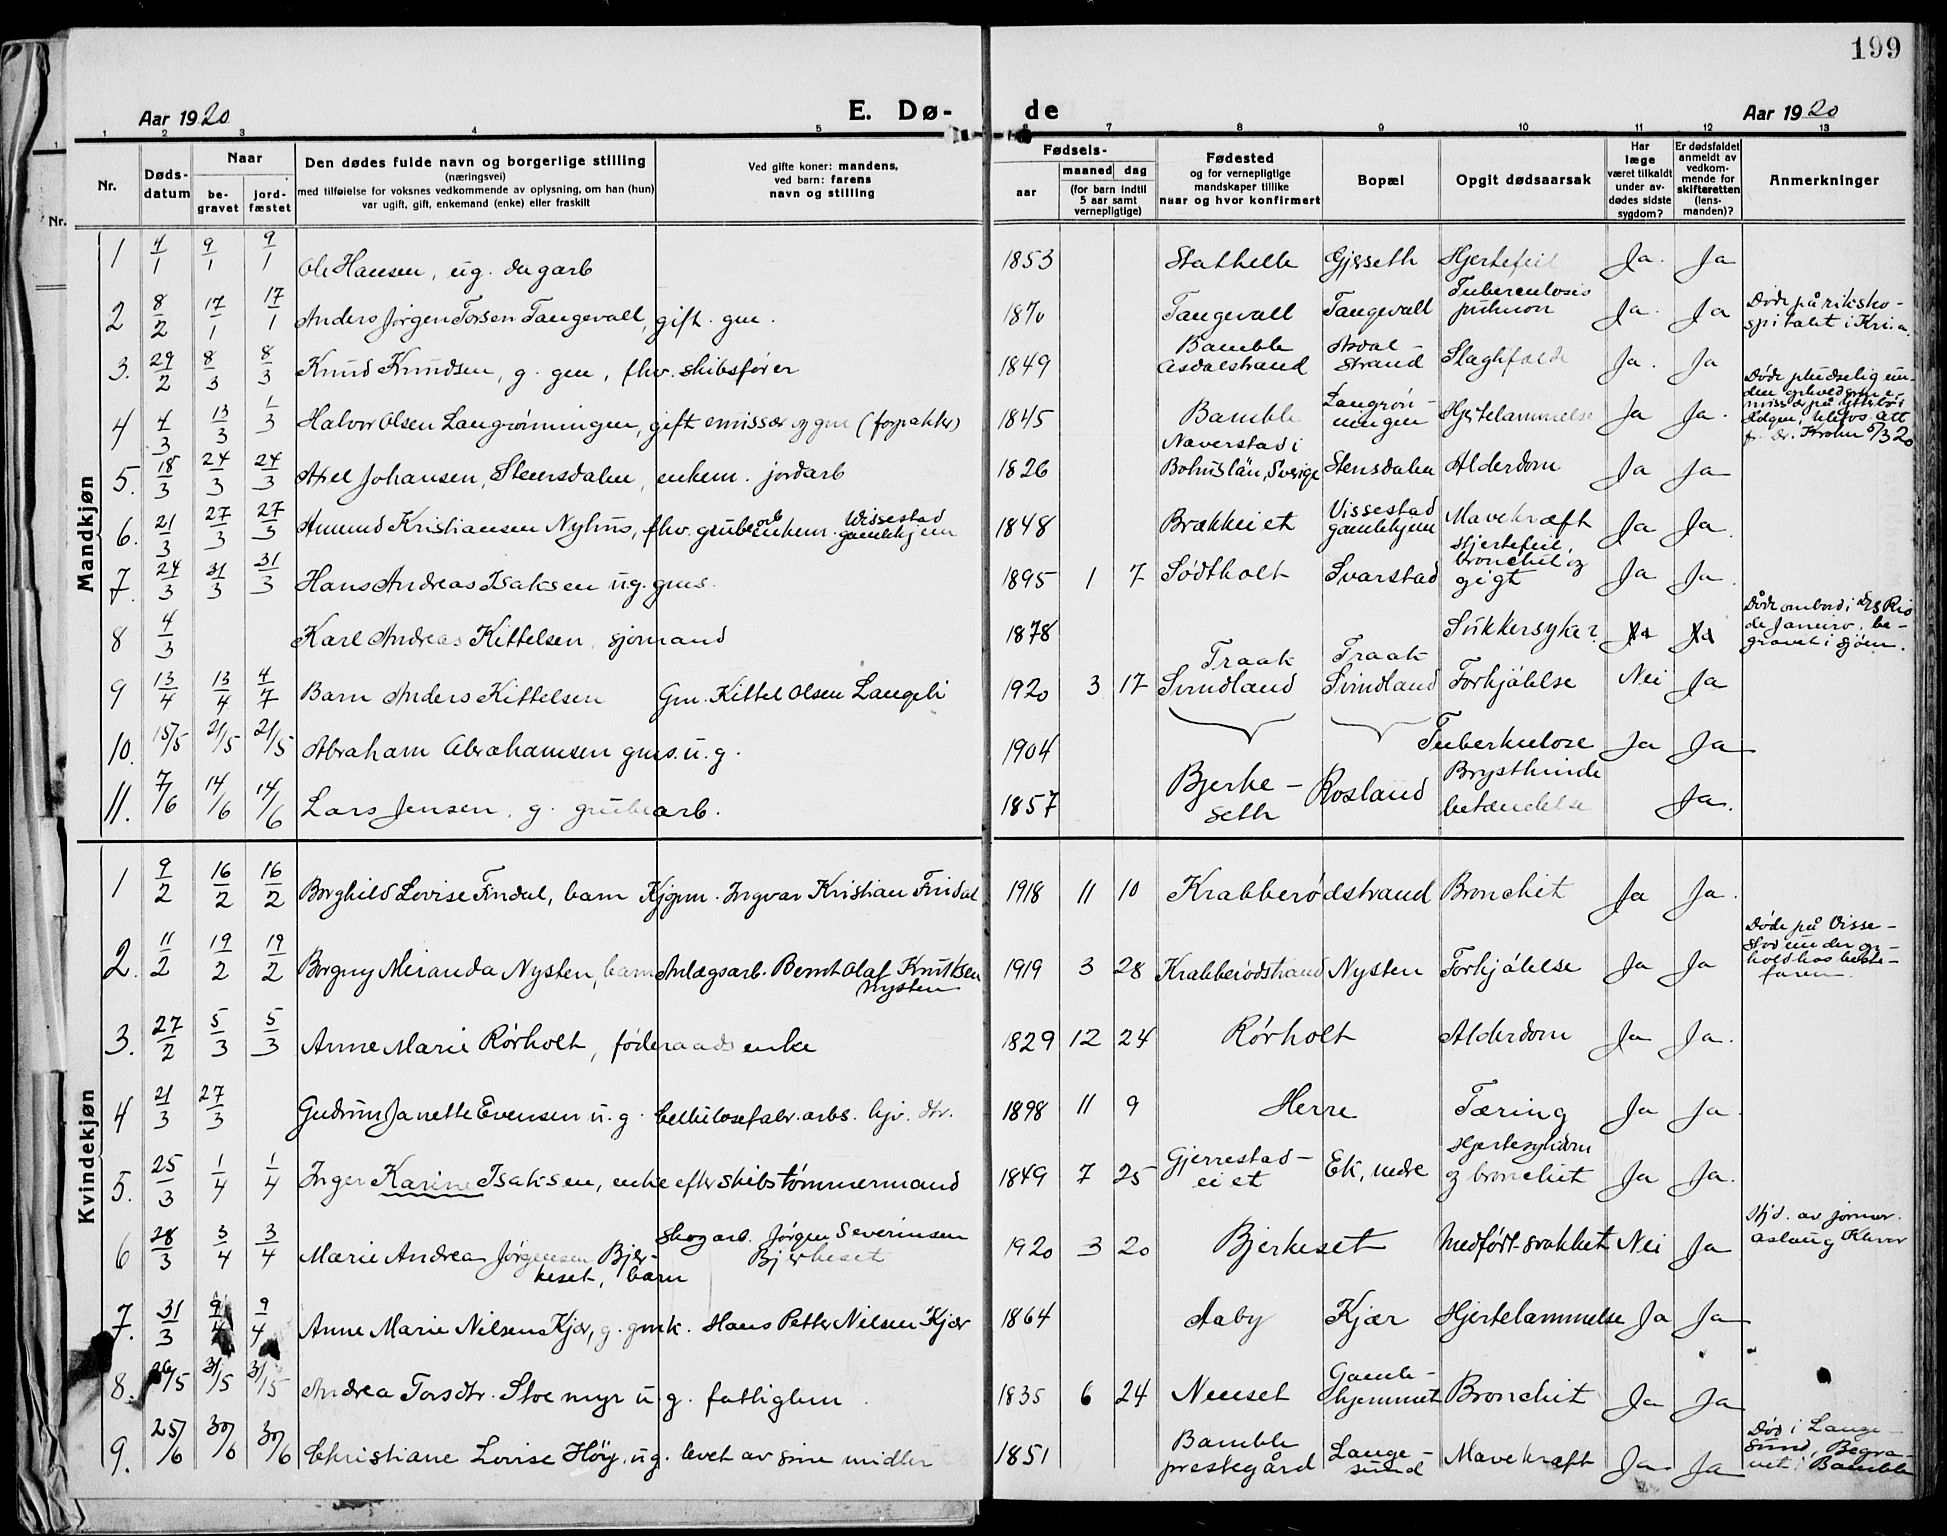 199
Aar 1920 E. Dø- de Aar 1920
1 2 3 4 5 6 7 8 9 10 11 12 13
Nr. Døds-datum Naar be-gravet jord-fæstet
Den dødes fulde navn og borgerlige stilling
(næringsvei)
med tilføielse for voksnes vedkommende av oplysning, om han (hun)
var ugift, gift, enkemand (enke) eller fraskilt
Ved gifte koner: mandens,
ved barn: farens
navn og stilling
Fødsels- aar maaned dag
(for barn indtil
5 aar samt
vernepligtige)
Fødested
og for vernepligtige
mandskaper tillike
naar og hvor konfirmert
Bopæl
Opgit dødsaarsak
Har
læge
været tilkaldt
under av-
dødes sidste
sygdom?
Er dødsfaldet
anmeldt av
vedkom-
mende for
skifteretten
(lens-
manden)?
Anmerkninger
Mandkjøn
1 4/1 9/1 9/1 Ole Hansen, ug. dagarb 1853 Stathelle Gjsseth Hjertefeil Ja. Ja
2 8/2 17/1 17/1 Anders Jørgen Torsen Tangevall, gift. gm. 1870 Tangevall Tangevall Tuberculosis pulmon Ja. Ja Døde på riksho-spitalet i Kri.a.
3. 29/2 8/3 8/3 Knud Knudsen, g. gm, fhv. skibsfører 1849 Bamble Asdalstrand Asdal-strand Slagtfælde Ja. Ja
4 4/3 13/3 1/3 Halvor Olsen Langrønningen, gift emissær og gm (forpakter) 1845 Bamble Langrøn-ningen Hjertelammelse Ja Ja. Døde pludselig un-der ophold som e-missær på
5. 18/3 24/3 24/3 Axel Johansen, Steensdalen, enkem. jordarb 1826 Naverstad i Bohuslän, Sverige Stensdalen Alderdom Ja Ja
6. 21/3 27/3 27/3 Amund Kristiansen Nyhus, fhv. grubearb enkem. Vissestad gamlehjem 1848 Brækkeiet Vissestad gamlehjem Mavekræft Ja Ja.
7. 24/3 31/3 31/3 Hans Andreas Isaksen ug. gms. 1895 1 7 Sødtholt Svarstad Hjertefeil, bronchit og gigt Ja Ja.
8 4/3 Karl Andreas Kittelsen, sjømand 1878 Sukkersyke? Ja Ja Døde ombord i D/S Rio de Janeiro, be-gravet i sjøen.
9 13/4 13/4 4/7 Barn Anders Kittelsen Gm. Kittel Olsen Langeli 1920 3 17 Traak Svindland Traak Svindland Forkjølelse Nei Ja
10. 15/5 21/5 21/5 Abraham Abrahamsen gms. u.g. 1904 Tuberkulose Ja Ja
11. 7/6 14/6 14/6 Lars Jensen, g. grubearb. 1857 Bjerke-seth Rosland Brysthinde betændelse Ja.
Kvindekjøn
1 9/2 16/2 16/2 Borghild Lovise Findal, barn Kjøpm. Ingvar Kristian Findal 1918 11 10 Krabberødstrand Bronchit Ja Ja.
2. 11/2 19/2 19/2 Borgny Miranda Nysten, barn Anlægsarb. Bernt Olaf Knutsen Nysten 1919 3 28 Krabberødstrand Nysten Forkjølelse Ja Ja Døde på Visse-stad under op-hold hos beste-faren
3. 27/2 5/3 5/3 Anne Marie Rørholt, føderaadsenke 1829 12 24 Rørholt Alderdom Ja Ja.
4 21/3 27/3 Gudrun Janette Evensen u.g. Cellulosefabr. arbs. hjv. dtr. 1898 11 9 Herre Tæring Ja Ja.
5. 25/3 1/4 1/4 Inger Karine Isaksen, enke efter skibstømmermand 1849 7 25 Gjerrestad-eiet Ek, nedre Hjertesykdom og bronchit Ja Ja.
6 28/3 3/4 3/4 Marie Andrea Jørgensen Bjer-keset, barn Skogarb. Jørgen Severinsen Bjerkeset 1920 3 20 Bjerkeset Medført svakhet Nei Ja Hjd. av jormor Aslaug
7. 31/3 9/4 9/4 Anne Marie Nilsen Kjær, g. gmk. Hans Petter Nilsen Kjær 1864 Aaby Kjær Hjertelammelse Ja Ja
8. 26/5 31/5 31/5 Andrea Torsdtr. Stoemyr u.g. fattiglem 1835 6 24 Neuset Gamle-hjemmet Bronchit Ja Ja
9. 25/6 30/6 30/6 Christiane Lovise Höy, ug. levet av sine midler 1851 Bamble prestegård Lange-sund Mavekræft Ja Ja Død i Lange-sund, Begra-vet i Bamble